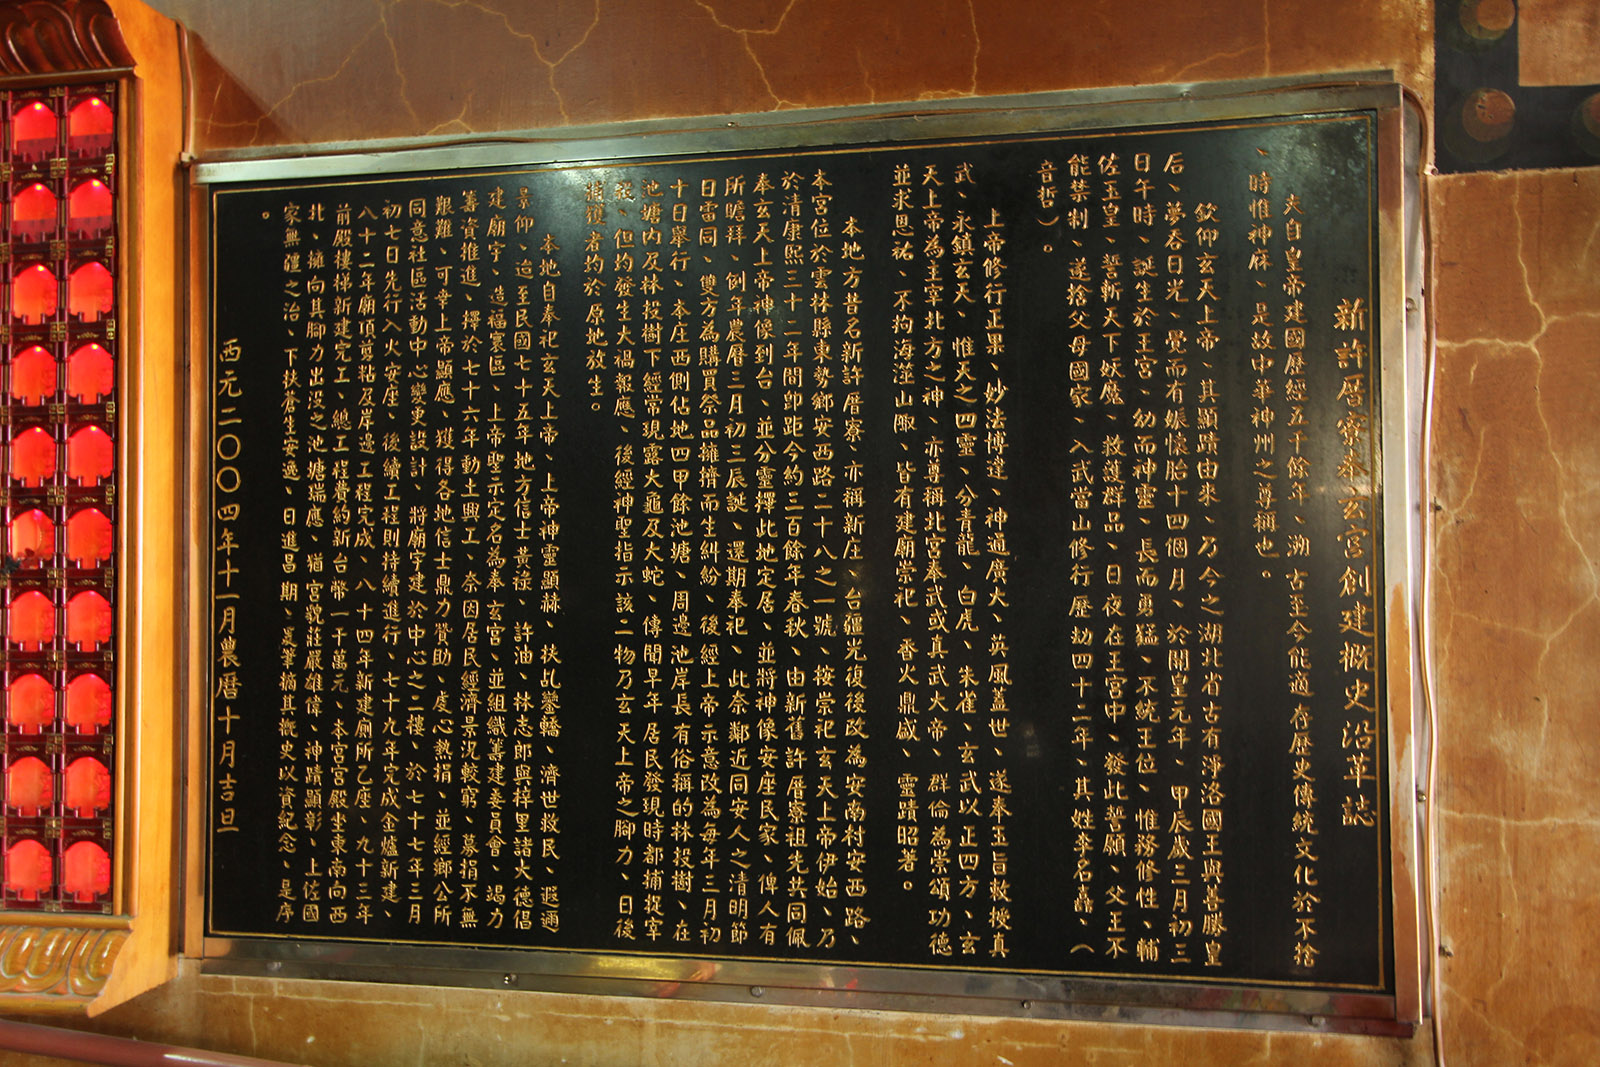 新許厝寮奉玄宮創建概史沿革誌
夫自皇帝建國歷經五千餘年、溯古至今能適存歷史傳統文化於不捨
、時惟神庥、是故中華神州之尊稱也。
欽仰玄天上帝、其顯蹟由來、乃今之湖北省古有淨洛國王與善勝皇
后、夢吞日光、覺而有娠懷胎十四個月、於開皇元年、甲辰歲三月初三
日午時、誕生於王宮、幼而神靈、長而勇猛、不統王位、惟務修性、輔
佐玉皇、誓斬天下妖魔、救護群品、日夜在王宮中、發此誓願、父王不
能禁制、遂捨父母國家、入武當山修行歷劫四十二年、其姓李名、（
音哲）。
上帝修行正果、妙法博達、神通廣大、英風蓋世、遂奉玉旨敕授真
武、永鎮玄天、惟天之四靈、分青龍、白虎、朱雀、玄武以正四方、玄
天上帝為主宰北方之神、亦尊稱北宮奉武或真武大帝、群倫為崇頌功德
並求恩祐、不拘海滋山陬、皆有建廟崇祀、香火鼎盛、靈蹟昭著。
本地方昔名新許厝寮、亦稱新庄、台疆光復後改為安南村安西路、
本宮位於雲林縣東勢鄉安西路二十八之一號、按崇祀玄天上帝伊始、乃
於清康熙三十二年間卽距今約三百餘年春秋、由新舊許厝寮祖先共同佩
奉玄天上帝神像到台、並分靈擇此地定居、並將神像安座民家、俾人有
所瞻拜、例年農曆三月初三辰誕、還期奉祀、此奈鄰近同安人之清明節
日雷同、雙方為購買祭品擁擠而生糾紛、後經上帝示意改為每年三月初
十日舉行、本庄西側佔地四甲餘池塘、周邊池岸長有俗稱的林投樹、在
池塘內及林投樹下經常現露大龜及大蛇、傳聞早年居民發現時都捕捉宰
、但均發生大禍報應、後經神聖指示該二物乃玄天上帝之腳力、日後
捕獲者均於原地放生。
本地自奉祀玄天上帝、上帝神靈顯赫、扶乩鑾轎、濟世救民、遐邇
景仰、迨至民國七十五年地方信士黃祿、許油、林志郎與梓里諸大德倡
建廟宇、造福裏區、上帝聖示定名為奉玄宮、並組織籌建委員會、竭力
籌資推進、擇於七十六年動土興工、奈因居民經濟景況較窮、募捐不無
艱難、可幸上帝顯應、獲得各地信士鼎力贊助、虔心熱捐、並經鄉公所
同意社區活動中心變更設計、將廟宇建於中心之二樓、於七十七年三月
初七日先行入火安座、後續工程則持續進行、七十九年完成金爐新建、
八十二年廟頂剪粘及岸邊工程完成、八十四年新建廁所乙座、九十三年
前殿樓梯新建完工、總工程費約新台幣一千萬元、本宮宮殿坐東南向西
北、擁向其腳力出沒之池塘瑞應、猶宮貌莊嚴雄偉、神蹟顯彰、上佐國
家無疆之治、下扶蒼生安逸、日進昌期、是筆摘其概史以資紀念、是序
。
西元二〇〇四年十一月農曆十月吉旦